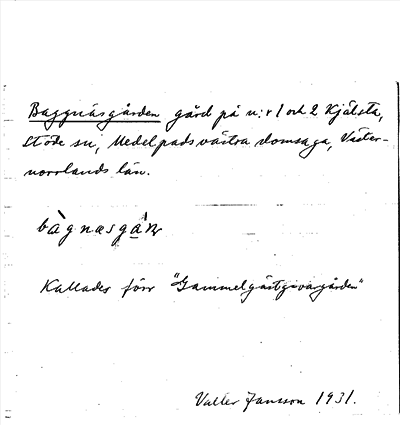 Baggnäsgården gård på n:r 1 och 2 Kjälsta,
Stöde sn, Medelpads västra domsaga, Väster-
norrlands län.
bàgnasgáɳ
Kallades förr "Gammelgästgivargården"
Valter Jansson 1931.